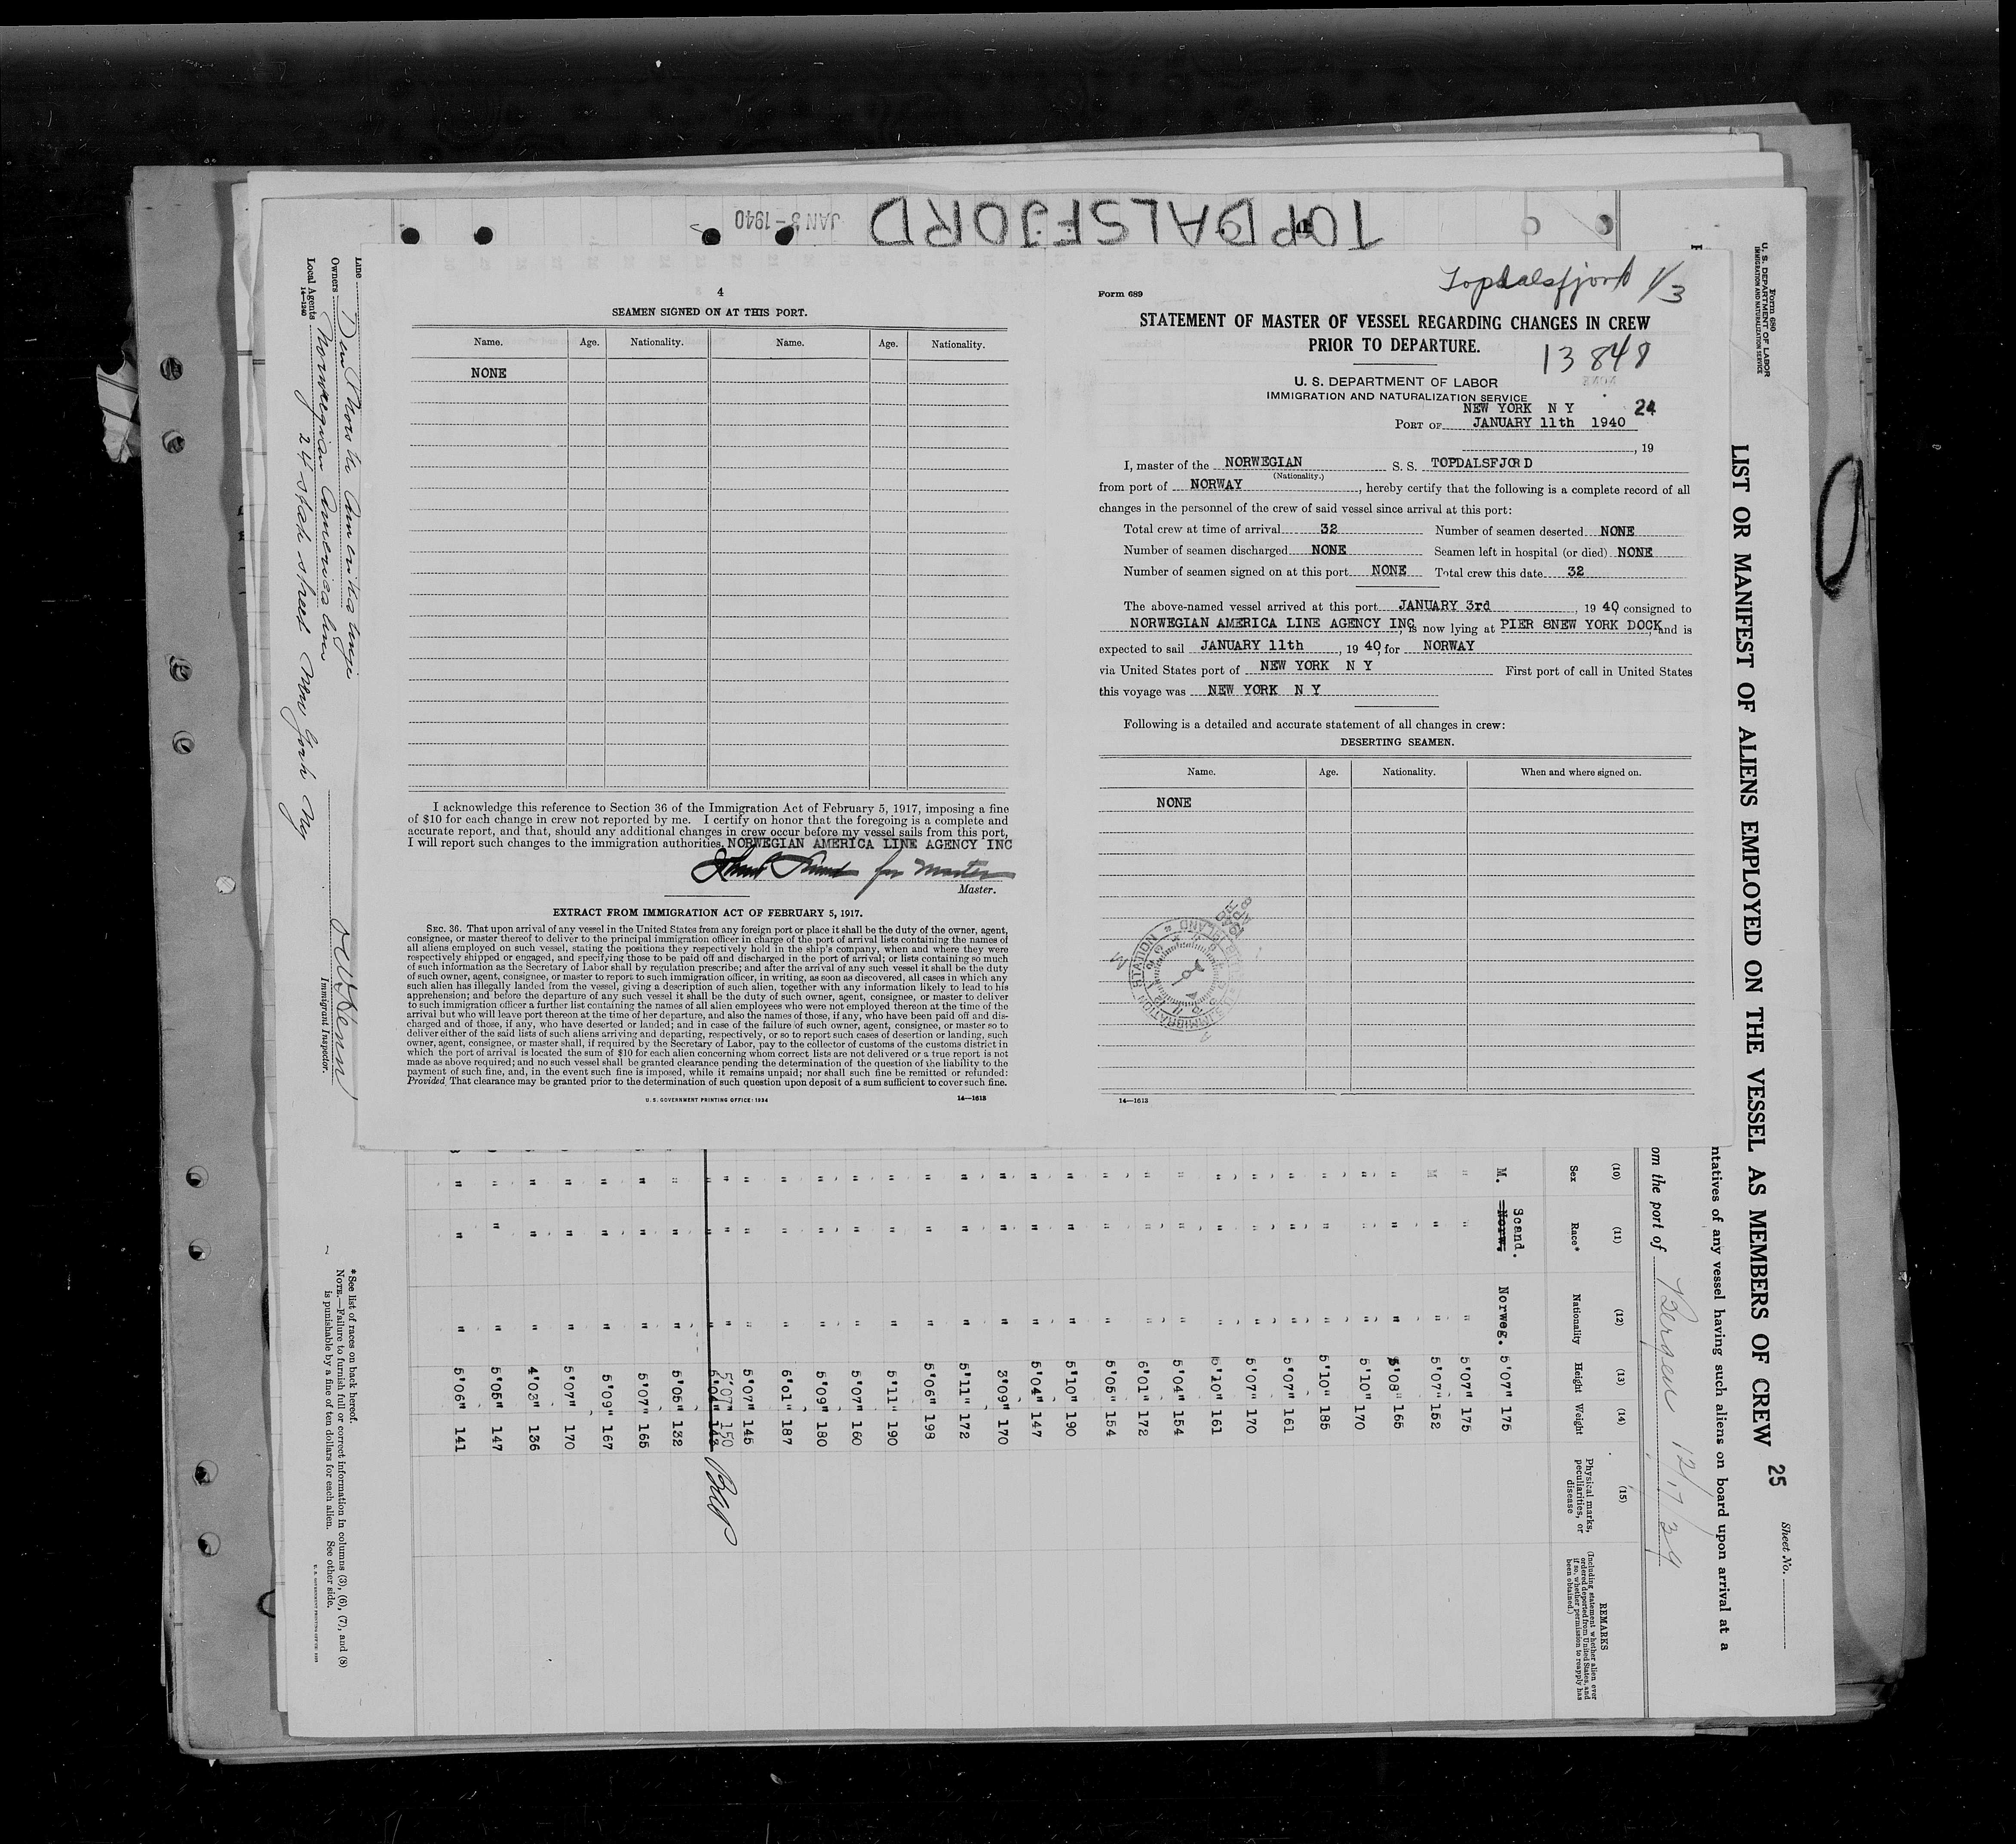 TOPDALSFJORD
JAN 3-1940
4
SEAMEN SIGNED ON AT THIS PORT.
Name. Age. Nationality. Name. Age. Nationality.
NONE
I acknowledge this reference to Section 36 of the Immigration Act of February 5, 1917, imposing a fine
of $10 for each change in crew not reported by me. I certify on honor that the foregoing is a complete and
accurate report, and that, should any additional changes in crew occur before my vessel sails from this port,
I will report such changes to the immigration authorities. NORWEGIAN AMERICA LINE AGENCY INC
for Master
Master.
EXTRACT FROM IMMIGRATION ACT OF FEBRUARY 5, 1917.
SEC. 36. That upon arrival of any vessel in the United States from any foreign port or place it shall be the duty of the owner, agent,
consignee, or master thereof to deliver to the principal immigration officer in charge of the port of arrival lists containing the names of
all aliens employed on such vessel, stating the positions they respectively hold in the ship's company, when and where they were
respectively shipped or engaged, and specifying those to be paid off and discharged in the port of arrival; or lists containing so much
of such information as the Secretary of Labor shall by regulation prescribe; and after the arrival of any such vessel it shall be the duty
of such owner, agent, consignee, or master to report to such immigration officer, in writing, as soon as discovered, all cases in which any
such alien has illegally landed from the vessel, giving a description of such alien, together with any information likely to lead to his
apprehension; and before the departure of any such vessel it shall be the duty of such owner, agent, consignee, or master to deliver
to such immigration officer a further list containing the names of all alien employees who were not employed thereon at the time of the
arrival but who will leave port thereon at the time of her departure, and also the names of those, if any, who have been paid off and dis-
charged and of those, if any, who have deserted or landed; and in case of the failure of such owner, agent, consignee, or master so to
deliver either of the said lists of such aliens arriving and departing, respectively, or so to report such cases of desertion or landing, such
owner, agent, consignee, or master shall, if required by the Secretary of Labor, pay to the collector of customs of the customs district in
which the port of arrival is located the sum of $10 for each alien concerning whom correct lists are not delivered or a true report is not
made as above required; and no such vessel shall be granted clearance pending the determination of the question of the liability to the
payment of such fine, and, in the event such fine is imposed, while it remains unpaid; nor shall such fine be remitted or refunded:
Provided, That clearance may be granted prior to the determination of such question upon deposit of a sum sufficient to cover such fine.
U. S. GOVERNMENT PRINTING OFFICE: 1934 14—1613
Topdalsfjord 1/3
Form 689
STATEMENT OF MASTER OF VESSEL REGARDING CHANGES IN CREW
PRIOR TO DEPARTURE.
13848
U. S. DEPARTMENT OF LABOR
IMMIGRATION AND NATURALIZATION SERVICE
NEW YORK N Y 24
PORT OF JANUARY 11th 1940
, 19
I, master of the NORWEGIAN S. S. TOPDALSFJORD
(Nationality.)
from port of NORWAY, hereby certify that the following is a complete record of all
changes in the personnel of the crew of said vessel since arrival at this port:
Total crew at time of arrival 32 Number of seamen deserted NONE
Number of seamen discharged NONE Seamen left in hospital (or died) NONE
Number of seamen signed on at this port NONE Total crew this date 32
The above-named vessel arrived at this port JANUARY 3rd, 19 40, consigned to
NORWEGIAN AMERICA LINE AGENCY INC, is now lying at PIER 8NEW YORK DOCK and is
expected to sail JANUARY 11th, 19 40, for NORWAY
via United States port of NEW YORK N Y First port of call in United States
this voyage was NEW YORK N Y
Following is a detailed and accurate statement of all changes in crew:
DESERTING SEAMEN.
Name. Age. Nationality. When and where signed on.
NONE
14—1613
Form 680
U. S. DEPARTMENT OF LABOR
IMMIGRATION AND NATURALIZATION SERVICE
LIST OR MANIFEST OF ALIENS EMPLOYED ON THE VESSEL AS MEMBERS OF CREW 25
Sheet No.
ntatives of any vessel having such aliens on board upon arrival at a
om the port of Bergen 12/17/39
(10) (11) (12) (13) (14) (15)
Sex Race* Nationality Height Weight Physical marks, peculiarities, or disease
REMARKS
(Including statement whether alien ever ordered deported from United States, and if so, whether permission to reapply has been obtained.)
Scand.
M. Norw. Norweg. 5'07" 175
" " " 5'07" 175
M " " 5'07" 152
" " " 5'08" 165
" " " 5'10" 170
" " " 5'10" 185
" " " 5'07" 161
" " " 5'07" 170
" " " 5'10" 161
" " " 5'04" 154
" " " 6'01" 172
" " " 5'05" 154
" " " 5'10" 190
" " " 5'04" 147
" " " 3'09" 170
" " " 5'11" 172
" " " 5'06" 198
" " " 5'11" 190
" " " 5'07" 160
" " " 5'09" 180
" " " 6'01" 187
" " " 5'07" 145
" " " 5'07" 150
" " " 6'04" 143
" " " 5'05" 132
" " " 5'07" 165
" " " 5'09" 167
" " " 5'07" 170
" " " 4'03" 136
" " " 5'05" 147
" " " 5'06" 141
Line Den Norske Amerikalinje
Owners Norwegian America Line
Local Agents 24 State Street New York NY
14—1240
Immigrant Inspector.
* See list of races on back hereof.
NOTE.—Failure to furnish full or correct information in columns (3), (6), (7), and (8)
is punishable by a fine of ten dollars for each alien. See other side.